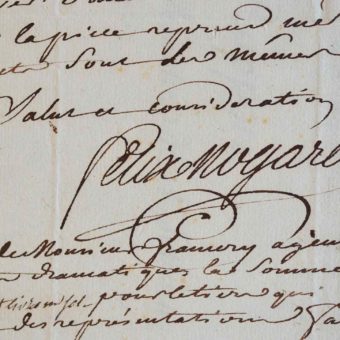 la pièce reprend
sont de même
Salut et considération
Felix Nogare
de Monsieur Framery agen
dramatiques la Somme
pour le tiers qui
des représentations